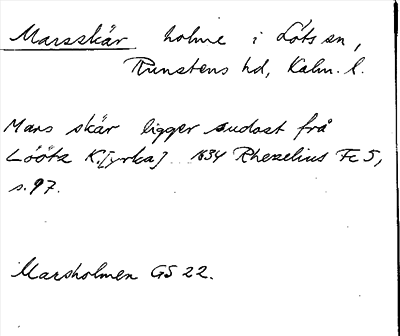 Marsskär holme i Löts sn,
Runstens hd, Kalm. l.
Mars skär ligger sudost frå
Lóótz K.[yrka] 1634 Rhezelius Fc 5,
s. 97.
Marsholmen GS 22.